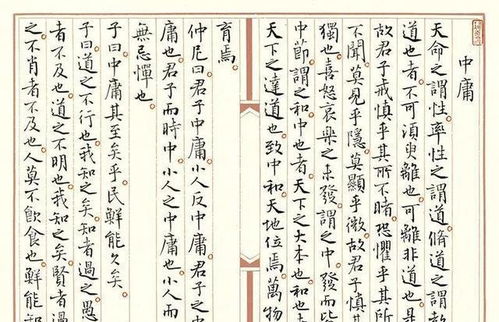 中庸
天命之謂性率性之謂道脩道之謂教
道也者不可須臾離也可離非道也是
故君子戒慎乎其所不睹恐懼乎其所
不聞莫見乎隱莫顯乎微故君子慎其
獨也喜怒哀樂之未發謂之中發而皆
中節謂之和中也者天下之大本也和也
天下之達道也致中和天地位焉萬物
育焉
仲尼曰君子中庸小人反中庸君子之中
庸也君子而時中小人之中庸也小人而
無忌憚也
子曰中庸其至矣乎民鮮能久矣
子曰道之不行也我知之矣知者過之愚
者不及也道之不明也我知之矣賢者過
之不肖者不及也人莫不飲食也鮮能知